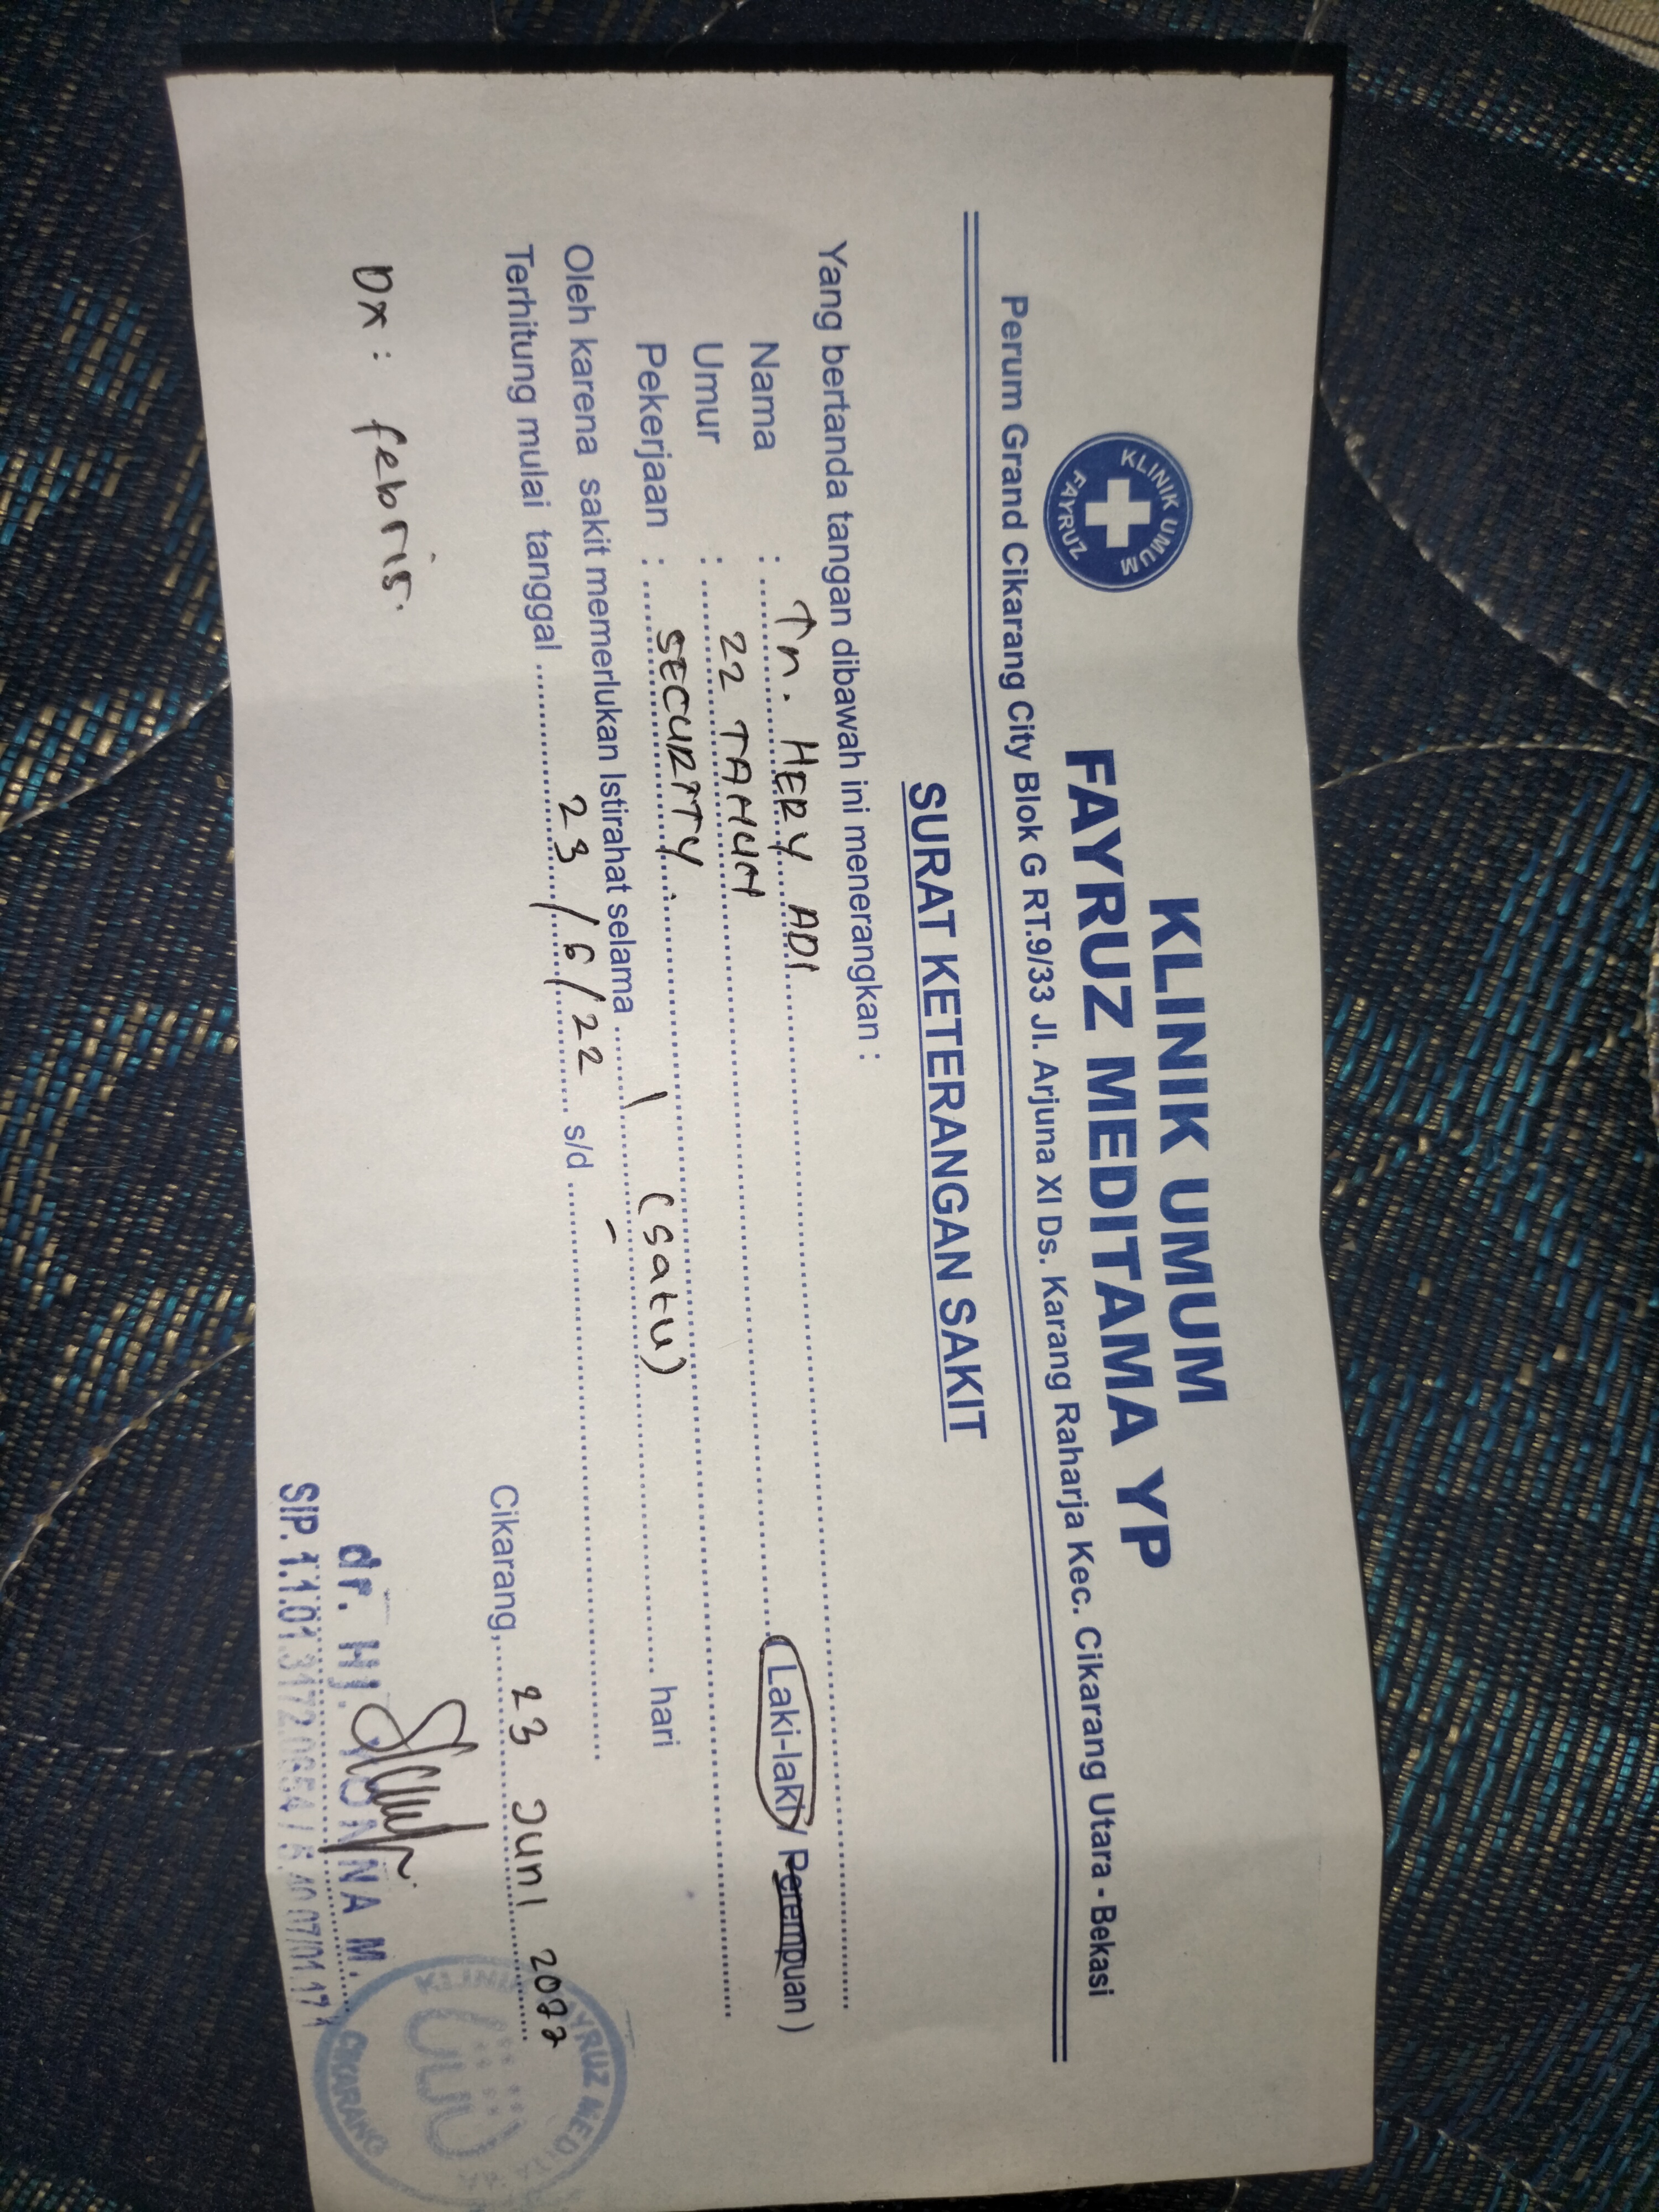 KLINIK UMUM
FAYRUZ
KLINIK UMUM
FAYRUZ MEDITAMA YP
Perum Grand Cikarang City Blok G RT.9/33 Jl. Arjuna XI Ds. Karang Raharja Kec. Cikarang Utara - Bekasi
SURAT KETERANGAN SAKIT
Yang bertanda tangan dibawah ini menerangkan :
Nama : Tn. HERY ADI (Laki-laki / Perempuan )
Umur : 22 TAHUN
Pekerjaan : SECURITY.
Oleh karena sakit memerlukan Istirahat selama 1 (satu) hari
Terhitung mulai tanggal 23/6/22 s/d -
Cikarang, 23 Juni 2022
Dx : febris.
dr. Hj. NA M.
SIP. 1.1.01.3172.
KLINIK FAYRUZ MEDITA
CIKARANG